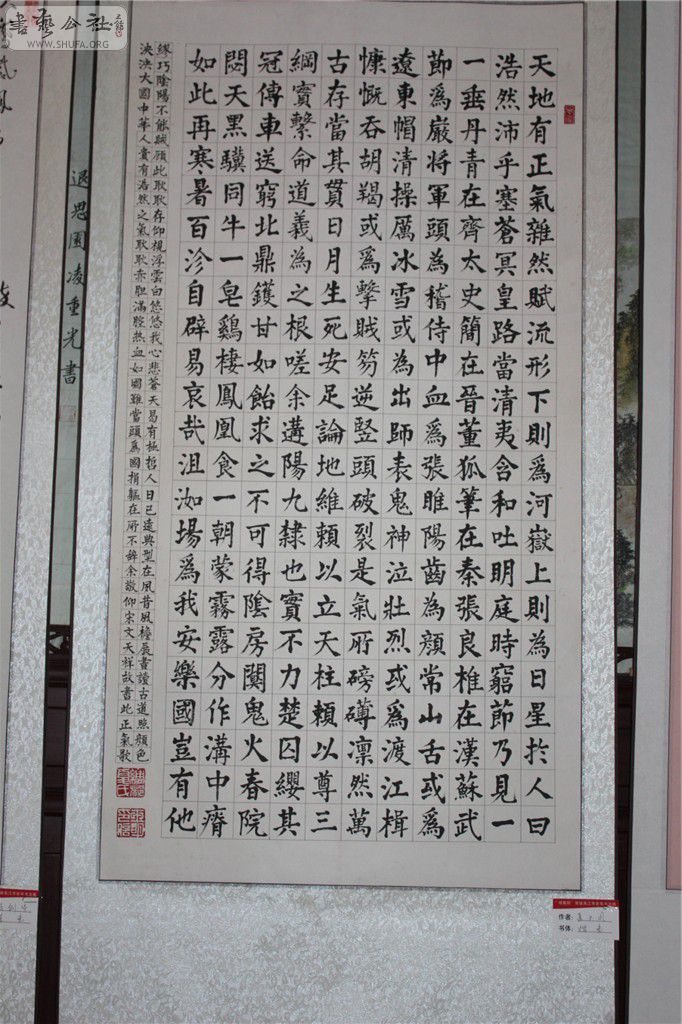 書藝公社
WWW.SHUFA.ORG
天地有正氣雜然賦流形下則爲河嶽上則為日星於人曰
浩然沛乎塞蒼冥皇路當清夷含和吐明庭時窮節乃見一
一垂丹青在齊太史簡在晉董狐筆在秦張良椎在漢蘇武
節爲嚴將軍頭為稽侍中血爲張睢陽齒為顏常山舌或爲
遼東帽清操厲冰雪或為出師表鬼神泣壯烈或爲渡江楫
慷慨吞胡羯或爲擊賊笏逆竪頭破裂是氣所磅礴凜然萬
古存當其貫日月生死安足論地維賴以立天柱賴以尊三
綱實繫命道義為之根嗟余遘陽九隸也實不力楚囚纓其
冠傳車送窮北鼎鑊甘如飴求之不可得陰房闃鬼火春院
閟天黑驥同牛一皂鷄棲鳳凰食一朝蒙霧露分作溝中瘠
如此再寒暑百沴自辟易哀哉沮洳場爲我安樂國豈有他
繆巧陰陽不能賊顧此耿耿存仰視浮雲白悠悠我心悲蒼天易有極哲人日已遠典型在夙昔風檐展書讀古道照顏色
泱泱大國中華人貴有浩然之氣耿耿赤胆滿腔热血如國難當頭爲國捐軀在所不辭余敬仰宋文天祥故書此正氣歌
退思園凌重光書
作者:
书体: 楷书